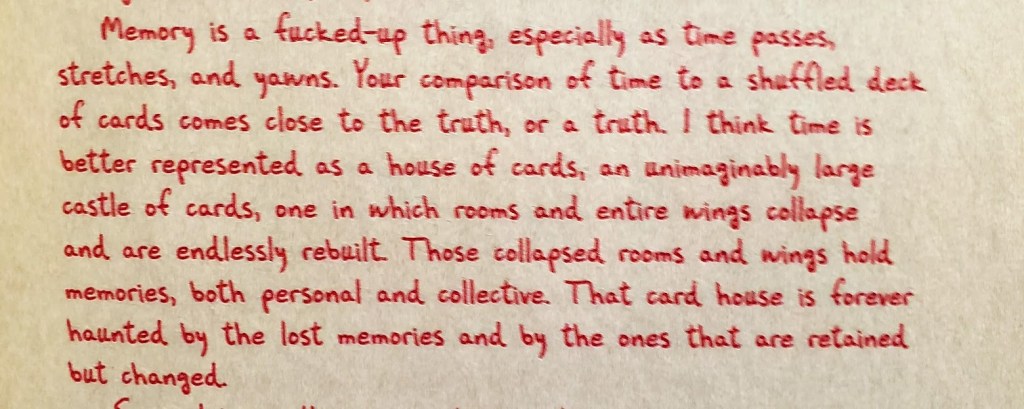 Memory is a fucked-up thing, especially as time passes,
stretches, and yawns. Your comparison of time to a shuffled deck
of cards comes close to the truth, or a truth. I think time is
better represented as a house of cards, an unimaginably large
castle of cards, one in which rooms and entire wings collapse
and are endlessly rebuilt. Those collapsed rooms and wings hold
memories, both personal and collective. That card house is forever
haunted by the lost memories and by the ones that are retained
but changed.